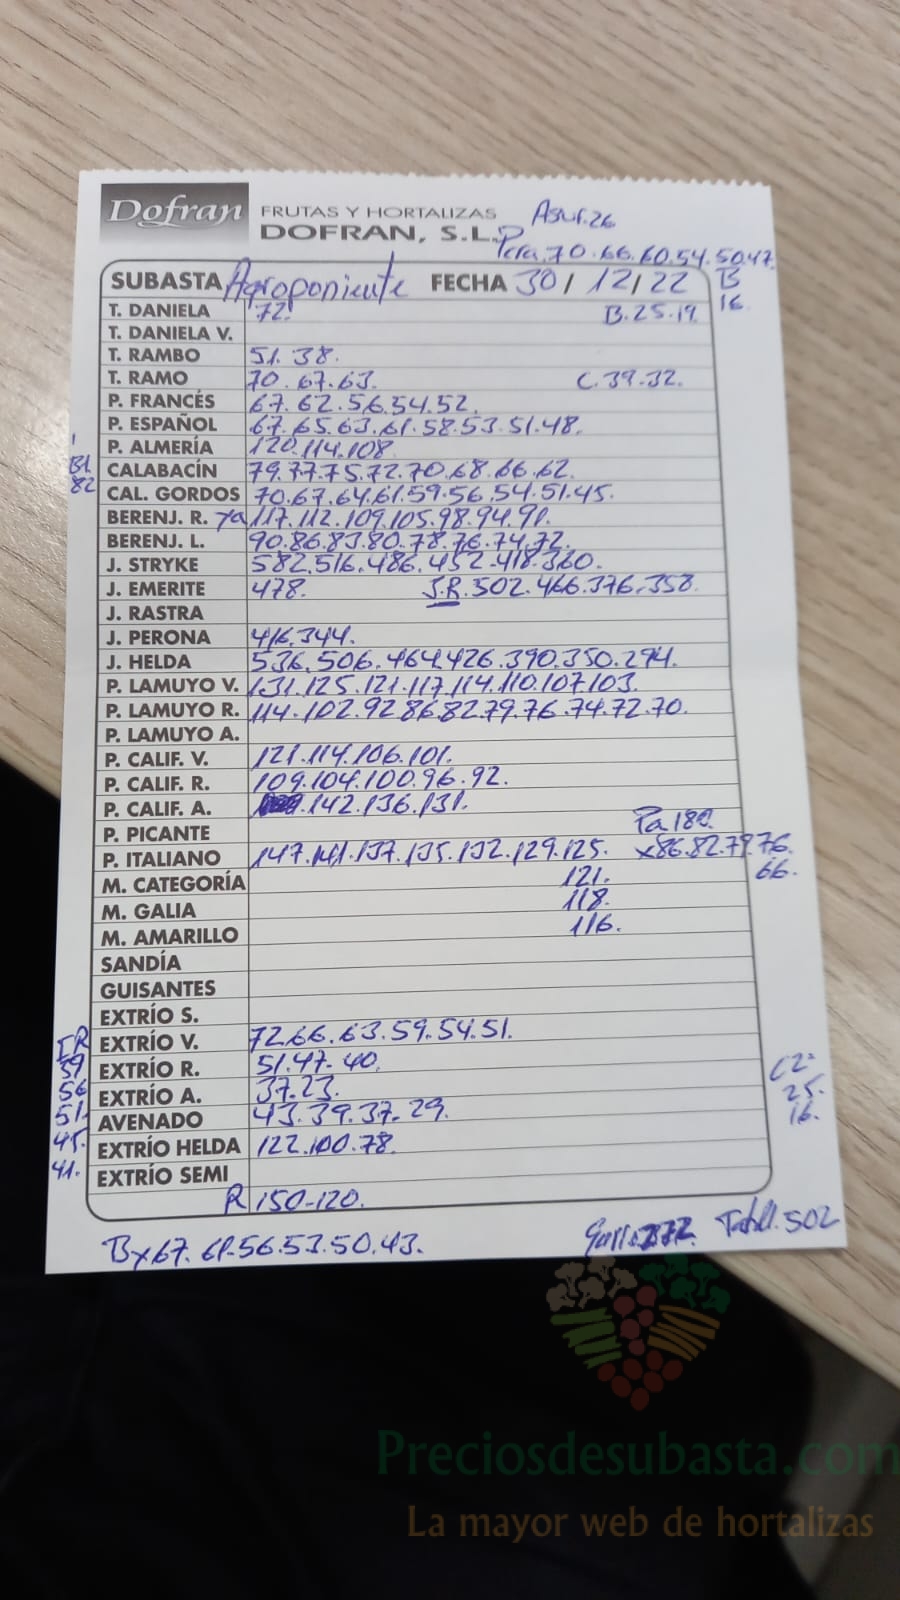 Dofran FRUTAS Y HORTALIZAS Asur.26
DOFRAN, S.L. Pera.70.66.60.54.50.47.
SUBASTA Agroponiente FECHA 30/12/22 B
T. DANIELA 72. B.25.19. 16.
T. DANIELA V.
T. RAMBO 51.38.
T. RAMO 70.67.63. C.39.32.
P. FRANCÉS 67.62.56.54.52.
P. ESPAÑOL 67.65.63.61.58.53.51.48.
P. ALMERÍA 120.114.108
Bl. CALABACÍN 79.77.75.72.70.68.66.62.
82 CAL. GORDOS 70.67.64.61.59.56.54.51.45.
BERENJ. R. ya 117.112.109.105.98.94.91.
BERENJ. L. 90.86.83.80.78.76.74.72.
J. STRYKE 582.516.486.452.418.360.
J. EMERITE 478. S.R.502.466.376.358.
J. RASTRA
J. PERONA 416.344.
J. HELDA 536.506.464.426.390.350.294.
P. LAMUYO V. 131.125.121.117.114.110.107.103.
P. LAMUYO R. 114.102.92.86.82.79.76.74.72.70.
P. LAMUYO A.
P. CALIF. V. 121.114.106.101.
P. CALIF. R. 109.104.100.96.92.
P. CALIF. A. .142.136.131.
P. PICANTE Pa 180.
P. ITALIANO 147.141.137.135.132.129.125. x86.82.79.76.
M. CATEGORÍA 121. 66.
M. GALIA 118.
M. AMARILLO 116.
SANDÍA
GUISANTES
EXTRÍO S.
ER EXTRÍO V. 72.66.63.59.54.51.
59 EXTRÍO R. 51.47.40. C2ª
56 EXTRÍO A. 37.23. 25.
51. AVENADO 43.39.37.29. 16.
45. EXTRÍO HELDA 122.100.78.
41. EXTRÍO SEMI
R 150-120.
Bx67.61.56.53.50.43. Tabell.502
Preciosdesubasta.com
La mayor web de hortalizas